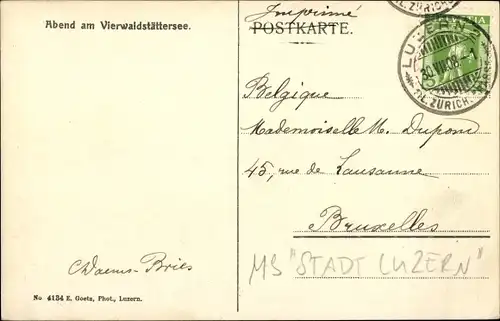 Abend am Vierwaldstättersee.
Imprimé
POSTKARTE.
HELVETIA
LUZERN
FIL. ZÜRICH
Belgique
Mademoiselle M. Dupond
45, rue de Lausanne
Bruxelles
MS "STADT LUZERN"
No 4134 E. Goetz, Phot., Luzern.